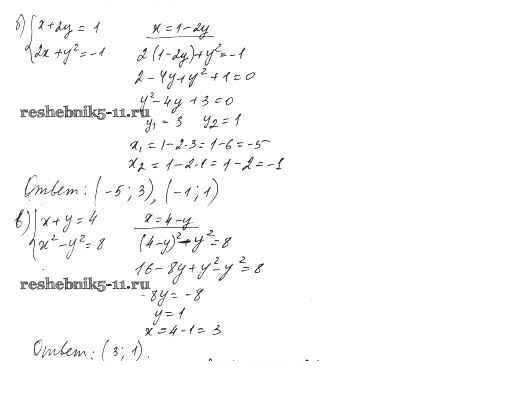 б) { x + 2y = 1      x = 1 - 2y
2x + y² = -1      2(1 - 2y) + y² = -1
2 - 4y + y² + 1 = 0
y² - 4y + 3 = 0
reshebnik5-11.ru
y₁ = 3   y₂ = 1
x₁ = 1 - 2·3 = 1 - 6 = -5
x₂ = 1 - 2·1 = 1 - 2 = -1
Ответ: (-5; 3), (-1; 1)
в) { x + y = 4      x = 4 - y
x² - y² = 8      (4 - y)² - y² = 8
16 - 8y + y² - y² = 8
reshebnik5-11.ru
-8y = -8
y = 1
x = 4 - 1 = 3
Ответ: (3; 1).